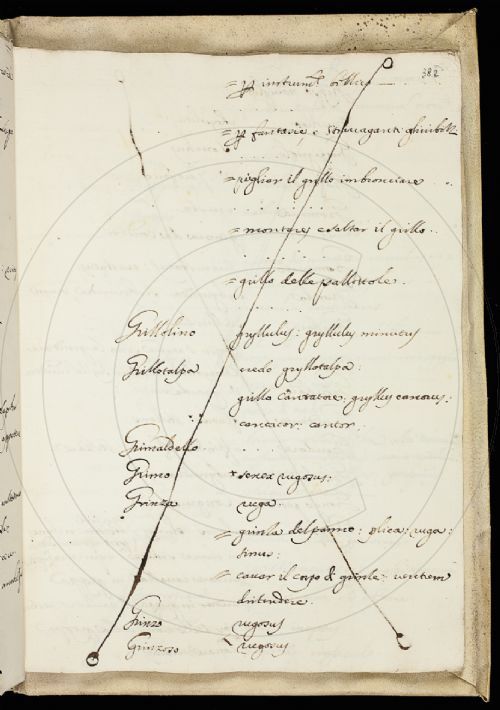 382
= p instrumto bellico —
= p fantasie, e stravaganti ghiribizzi
= pigliar il grillo imbronciare
= montere, e saltar il grillo
= grillo delle pallottole
Grillolino gryllulus: gryllulus minutus
Grillotalpa vedo gryllotalpa:
grillo cantatore: gryllus canorus:
canticor: cantor:
Grimaldello
Grimo + senex rugosus:
Grinza ruga:
= grinza del panno: plica: ruga:
sinus:
= cavar il corpo di grinze: ventrem
distendere
Grinzo rugosus
Grinzoso rugosus